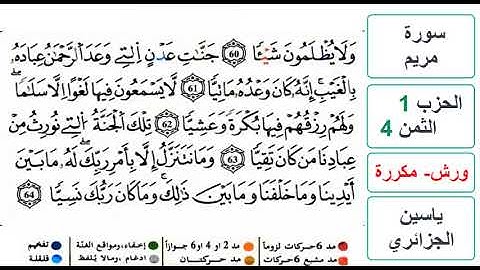 وَلَا يُظْلَمُونَ شَيْـاٗ 60 جَنَّٰتِ عَدْنٍ اِ۬لتِے وَعَدَ اَ۬لرَّحْمَٰنُ عِبَادَهُۥ
بِالْغَيْبِ إِنَّهُۥ كَانَ وَعْدُهُۥ مَاتِيّاٗ 61 لَّا يَسْمَعُونَ فِيهَا لَغْواً اِلَّا سَلَٰماٗ
وَلَهُمْ رِزْقُهُمْ فِيهَا بُكْرَةٗ وَعَشِيّاٗ 62 تِلْكَ اَ۬لْجَنَّةُ اُ۬لتِے نُورِثُ مِنْ
عِبَادِنَا مَن كَانَ تَقِيّاٗ 63 وَمَا نَتَنَزَّلُ إِلَّا بِأَمْرِ رَبِّكَ لَهُۥ مَا بَيْنَ
أَيْدِينَا وَمَا خَلْفَنَا وَمَا بَيْنَ ذَٰلِكَ وَمَا كَانَ رَبُّكَ نَسِيّاٗ 64
مد 6 حركات لزوماً مد 2 او 4 او 6 جوازاً إخفاء، ومواقع الغنة تفخيم
مد مشبع 6 حركات مد حركتان ادغام، ومالا يلفظ قلقلة
سورة
مريم
الحزب 1
الثمن 4
ورش- مكررة
ياسين
الجزائري